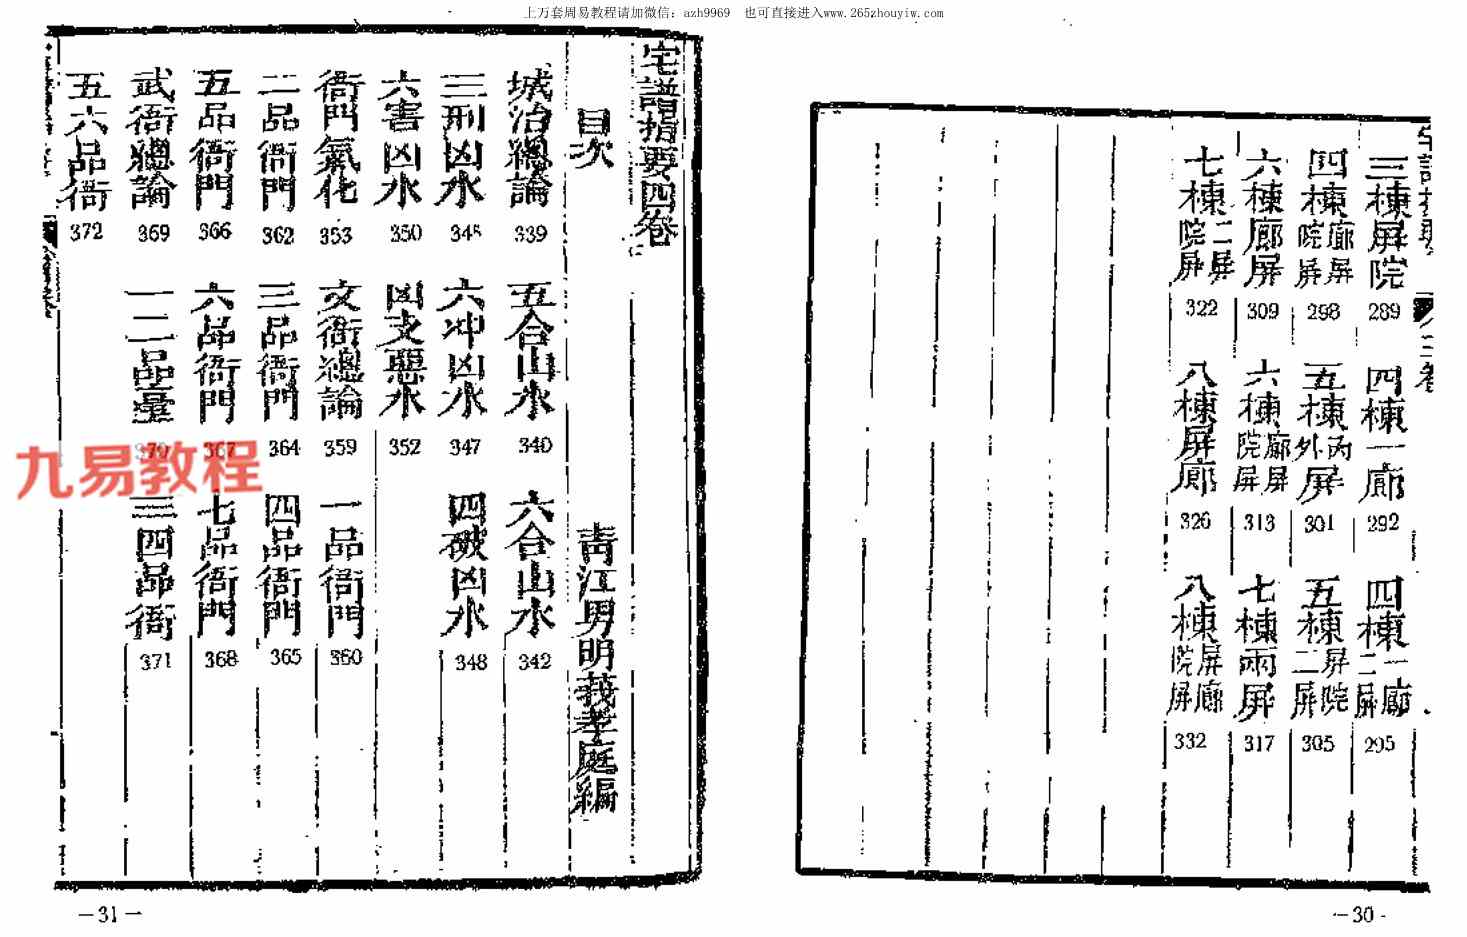 上万套周易教程请加微信：azh9969　也可直接进入www.265zhouyiw.com
三棟屏院 289
四棟一廊 292
四棟二屏一廊 295
四棟院屏廊屏 298
五棟外屏 301
五棟二屏屏院 305
六棟廊屏 309
六棟院屏廊屏 313
七棟兩屏 317
七棟院屏二屏 322
八棟屏廊 326
八棟院屏屏廊 332
-30-
宅譜指要四卷
目次
青江男明莪孝庭編
城治總論 339
五合山水 340
六合山水 342
三刑凶水 345
六冲凶水 347
四破凶水 348
六害凶水 350
凶支惡水 352
衙門氣化 353
文衙總論 359
一品衙門 360
二品衙門 362
三品衙門 364
四品衙門 365
五品衙門 366
六品衙門 367
七品衙門 368
武衙總論 369
一二品 370
三四品衙 371
五六品衙 372
-31-
九易教程